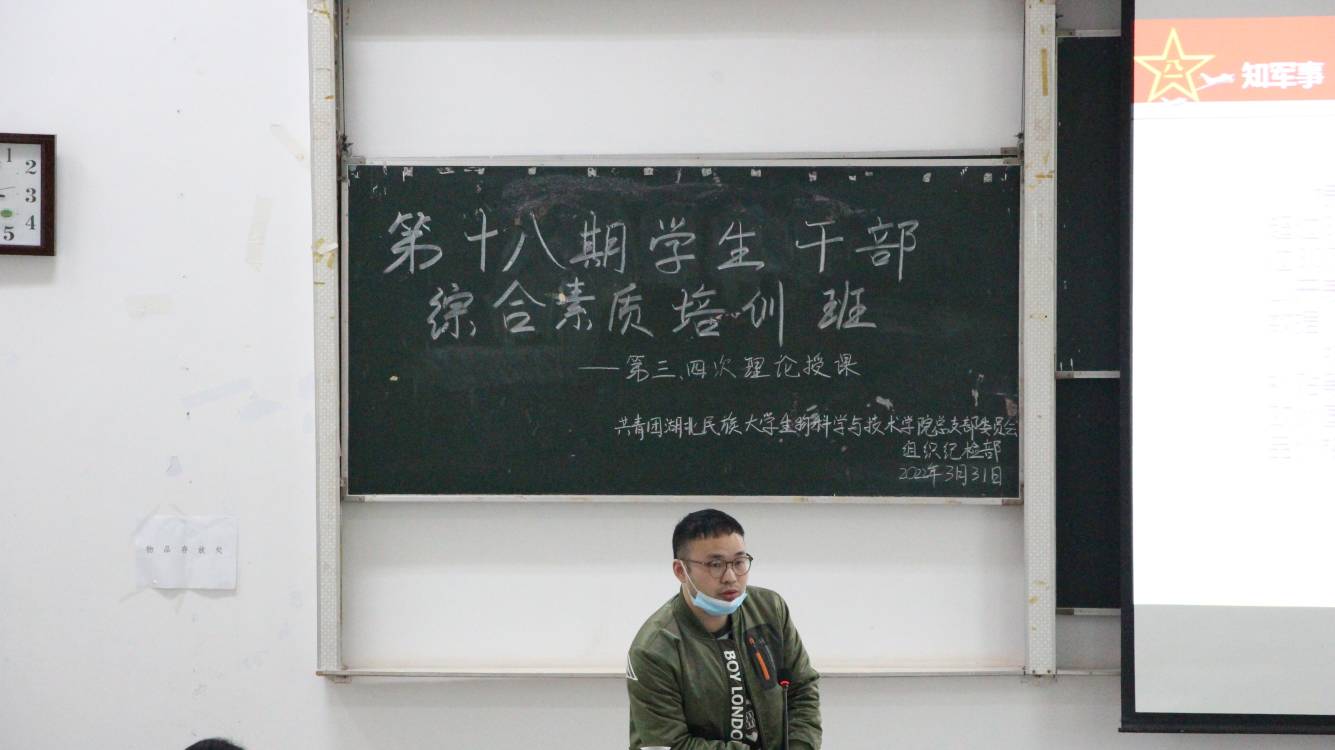 1
2
3
4
5
八一
知军事
第十八期学生干部
综合素质培训班
——第三、四次理论授课
共青团湖北民族大学生物科学与技术学院总支部委员会
组织纪检部
2022年3月31日
物品存放处
BOY LONDO